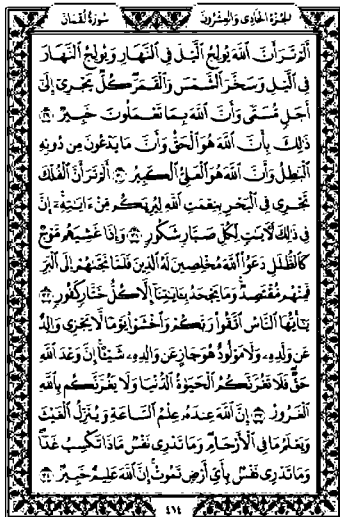 الجزء الحادي والعشرون سورة لقمان
أَلَمْ تَرَ أَنَّ ٱللَّهَ يُولِجُ ٱلَّيْلَ فِى ٱلنَّهَارِ وَيُولِجُ ٱلنَّهَارَ
فِى ٱلَّيْلِ وَسَخَّرَ ٱلشَّمْسَ وَٱلْقَمَرَ كُلٌّ يَجْرِىٓ إِلَىٰٓ
أَجَلٍ مُّسَمًّى وَأَنَّ ٱللَّهَ بِمَا تَعْمَلُونَ خَبِيرٌ ٢٩
ذَٰلِكَ بِأَنَّ ٱللَّهَ هُوَ ٱلْحَقُّ وَأَنَّ مَا يَدْعُونَ مِن دُونِهِ
ٱلْبَٰطِلُ وَأَنَّ ٱللَّهَ هُوَ ٱلْعَلِىُّ ٱلْكَبِيرُ ٣٠ أَلَمْ تَرَ أَنَّ ٱلْفُلْكَ
تَجْرِى فِى ٱلْبَحْرِ بِنِعْمَتِ ٱللَّهِ لِيُرِيَكُم مِّنْ ءَايَٰتِهِۦٓ إِنَّ
فِى ذَٰلِكَ لَءَايَٰتٍ لِّكُلِّ صَبَّارٍ شَكُورٍ ٣١ وَإِذَا غَشِيَهُم مَّوْجٌ
كَٱلظُّلَلِ دَعَوُا۟ ٱللَّهَ مُخْلِصِينَ لَهُ ٱلدِّينَ فَلَمَّا نَجَّىٰهُمْ إِلَى ٱلْبَرِّ
فَمِنْهُم مُّقْتَصِدٌ وَمَا يَجْحَدُ بِـَٔايَٰتِنَآ إِلَّا كُلُّ خَتَّارٍ كَفُورٍ ٣٢
يَٰٓأَيُّهَا ٱلنَّاسُ ٱتَّقُوا۟ رَبَّكُمْ وَٱخْشَوْا۟ يَوْمًا لَّا يَجْزِى وَالِدٌ
عَن وَلَدِهِۦ وَلَا مَوْلُودٌ هُوَ جَازٍ عَن وَالِدِهِۦ شَيْـًٔا إِنَّ وَعْدَ ٱللَّهِ
حَقٌّ فَلَا تَغُرَّنَّكُمُ ٱلْحَيَوٰةُ ٱلدُّنْيَا وَلَا يَغُرَّنَّكُم بِٱللَّهِ
ٱلْغَرُورُ ٣٣ إِنَّ ٱللَّهَ عِندَهُۥ عِلْمُ ٱلسَّاعَةِ وَيُنَزِّلُ ٱلْغَيْثَ
وَيَعْلَمُ مَا فِى ٱلْأَرْحَامِ وَمَا تَدْرِى نَفْسٌ مَّاذَا تَكْسِبُ غَدًا
وَمَا تَدْرِى نَفْسٌۢ بِأَىِّ أَرْضٍ تَمُوتُ إِنَّ ٱللَّهَ عَلِيمٌ خَبِيرٌۢ ٣٤
٤١٤